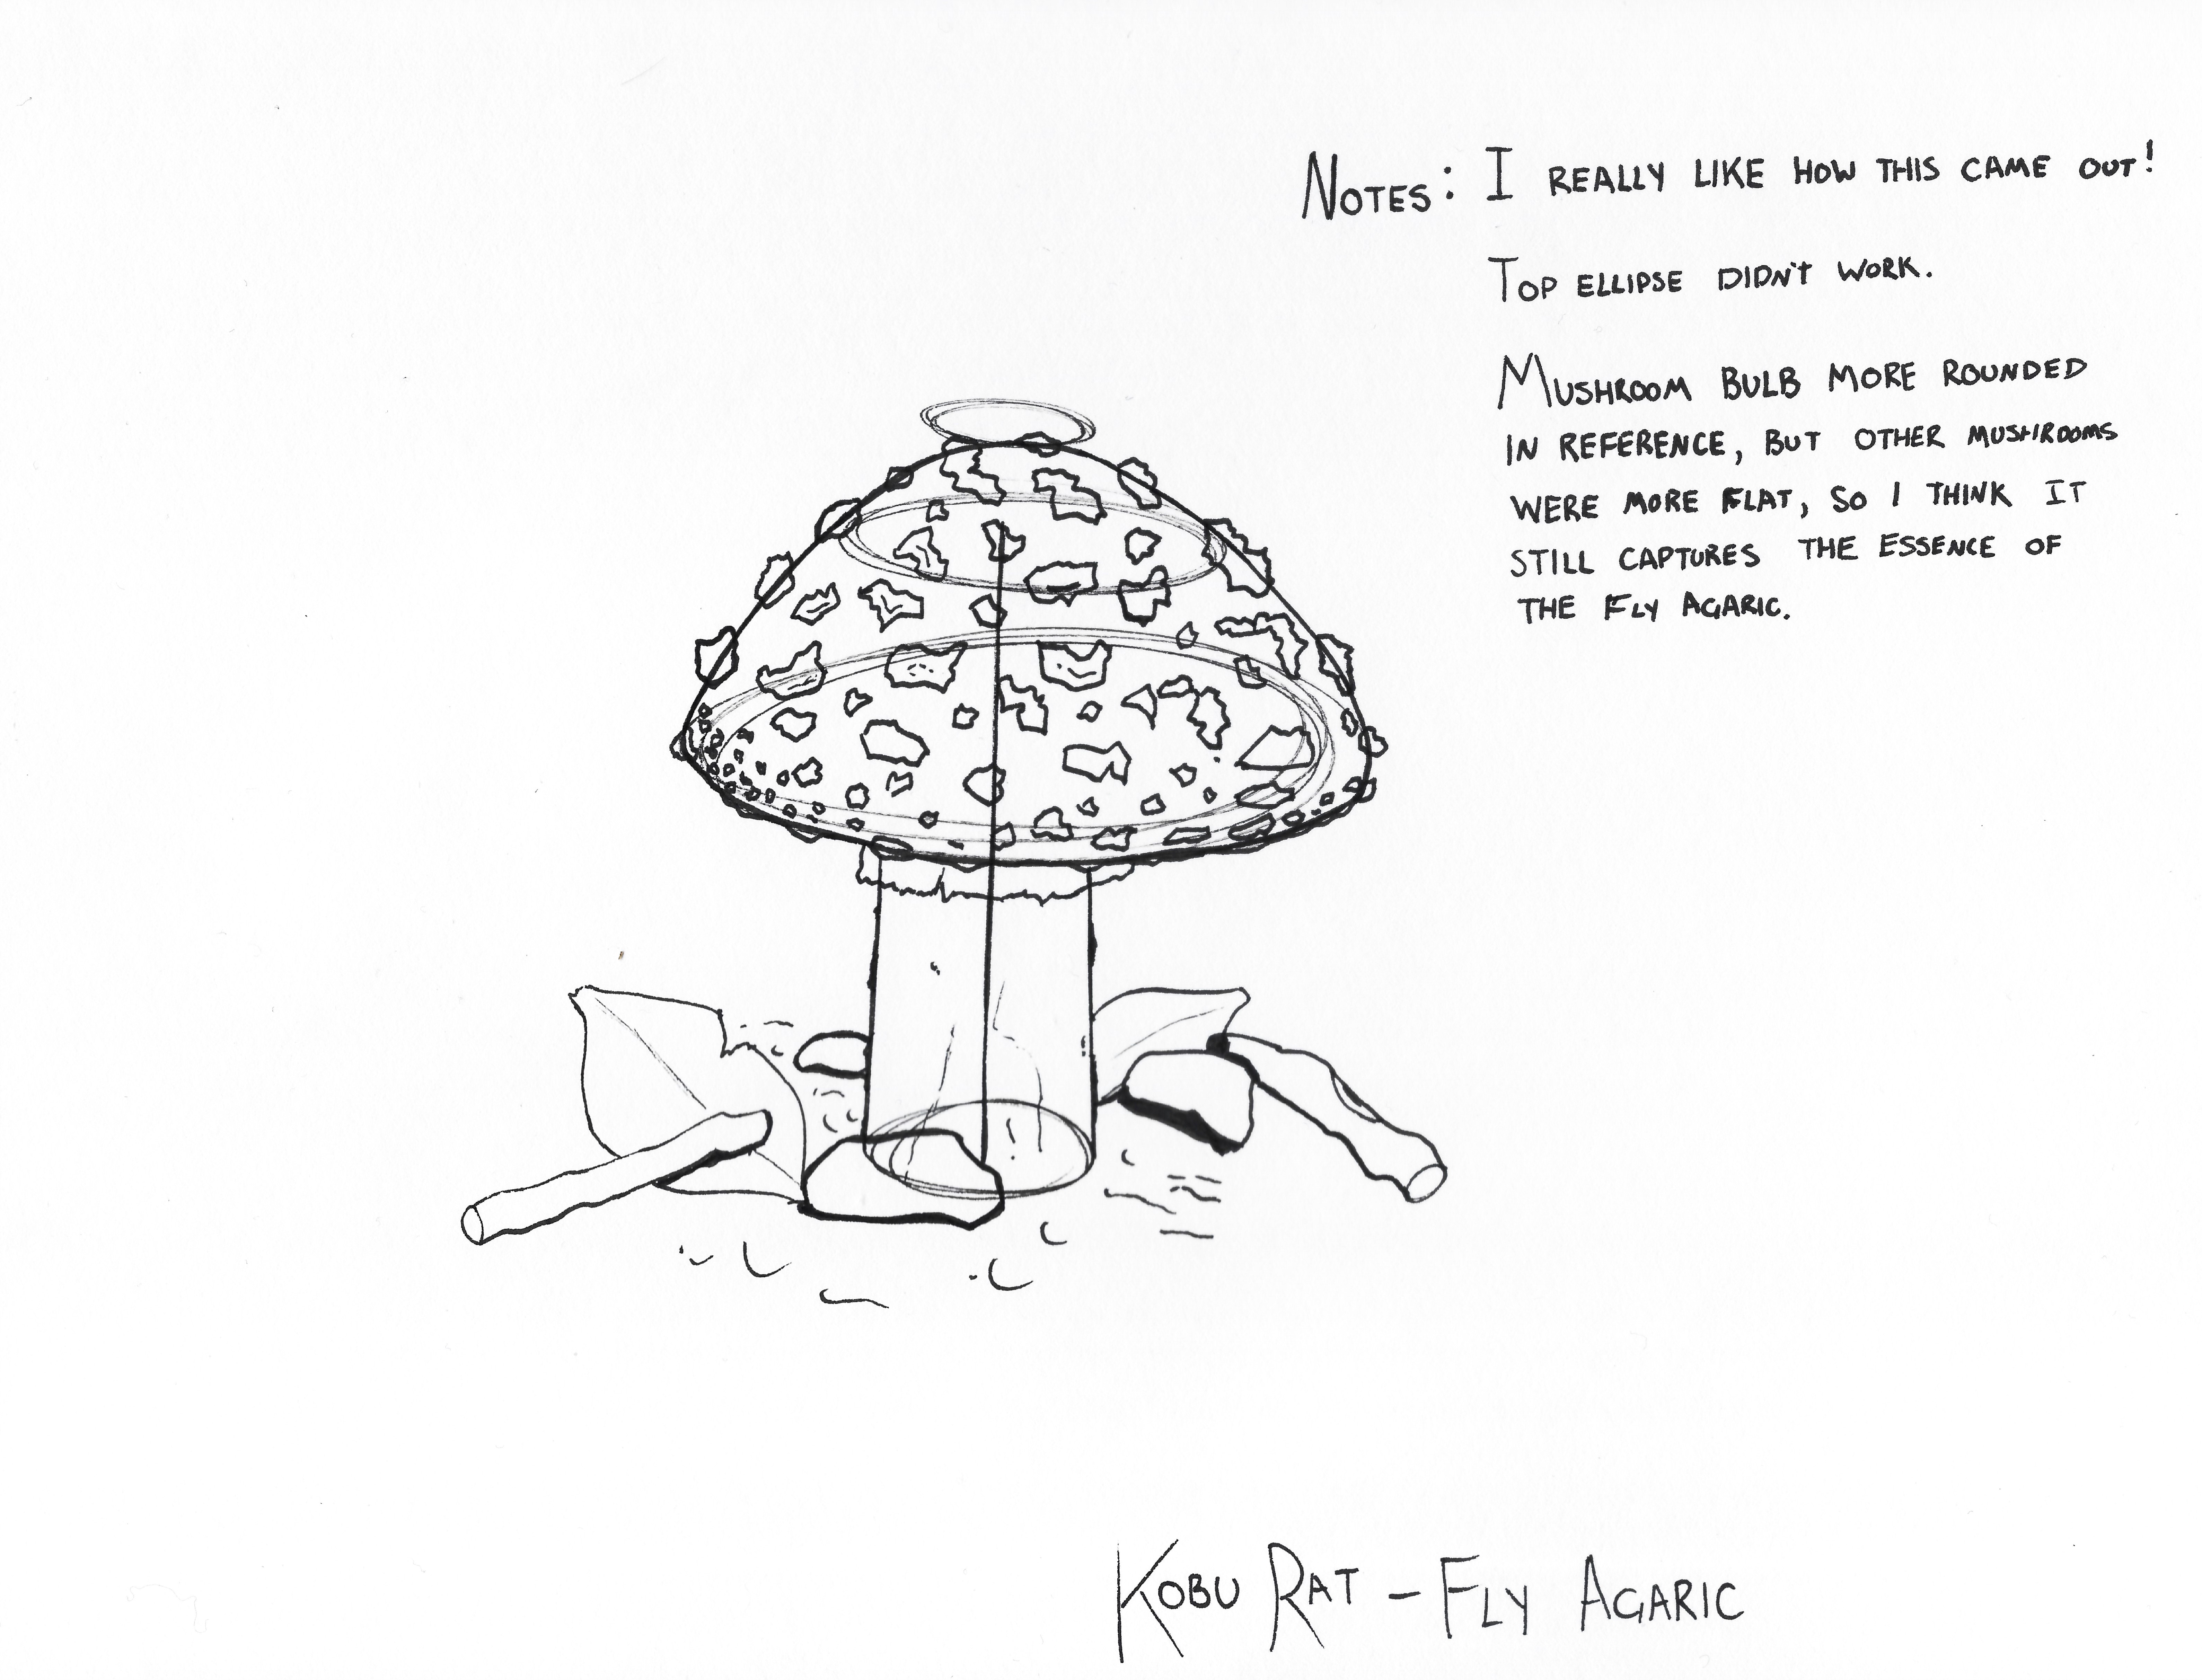 NOTES: I REALLY LIKE HOW THIS CAME OUT!
TOP ELLIPSE DIDN'T WORK.
MUSHROOM BULB MORE ROUNDED
IN REFERENCE, BUT OTHER MUSHROOMS
WERE MORE FLAT, SO I THINK IT
STILL CAPTURES THE ESSENCE OF
THE FLY AGARIC.
KOBU RAT - FLY AGARIC